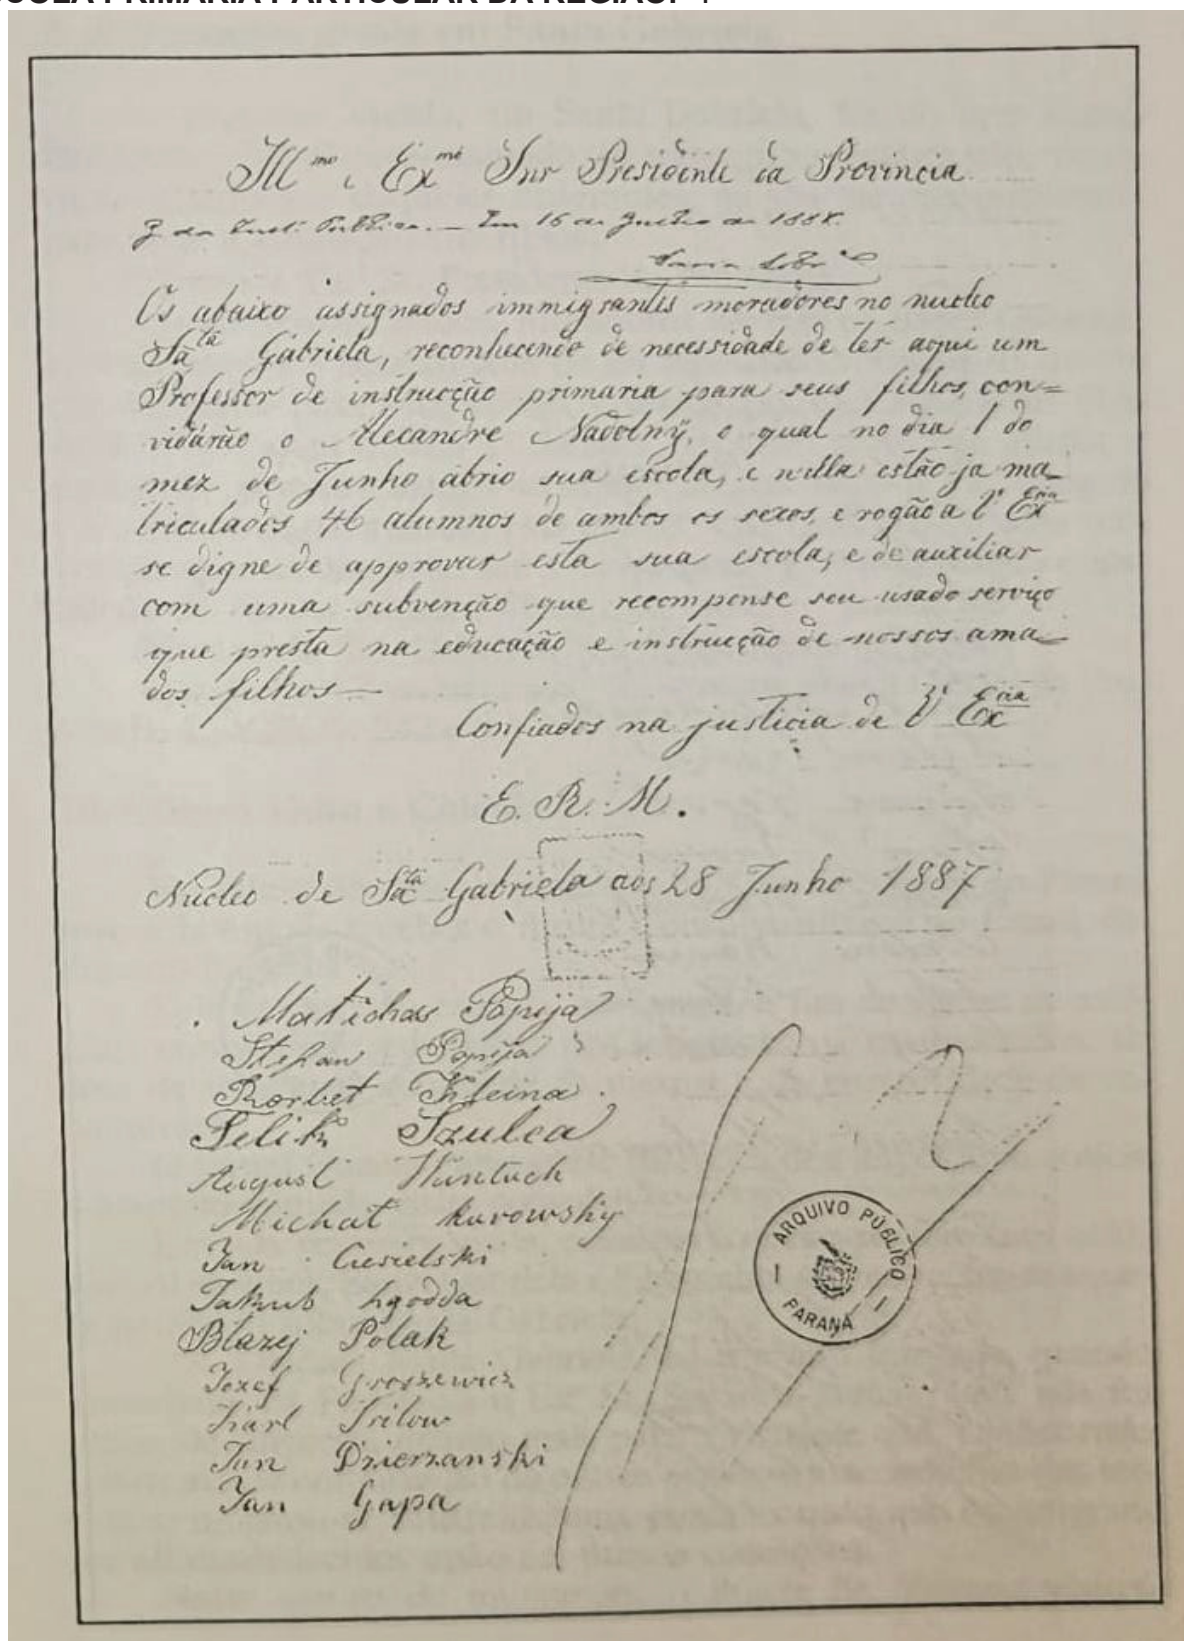 PRIMÁRIA PARTICULAR DA REGIÃO.
Ill^mo e Ex^mo Snr Presidente da Provincia.
Em 16 de Julho de 1887.
Faria Sobr^o
Os abaixo assignados immigrantes moradores no nucleo
S^ta Gabriela, reconhecendo de necessidade de ter aqui um
Professor de instrucção primaria para seus filhos, con=
vidárão o Alecandre Nadolny, o qual no dia 1 do
mez de Junho abrio sua escola, e nella estão ja ma-
triculados 46 alumnos de ambos os sexos, e rogão a V^a Ex^cia
se digne de approvar esta sua escola, e de auxiliar
com uma subvenção que recompense seu usado serviço
que presta na educação e instrucção de nossos ama-
dos filhos—
Confiados na justicia de V^a Ex^cia
E. R. M.
Nucleo de S^ta Gabriela aos 28 Junho 1887
Matichas Papija
Stefan Papija
Rorbet Kleina
Felik Szulca
August Huntuch
Michał Kurowsky
Jan Ciesielski
Jakub Lgodda
Błazej Polak
Jozef Groszewicz
Karl Trilow
Jan Dzierzanski
Jan Gapa
ARQUIVO PÚBLICO
PARANÁ